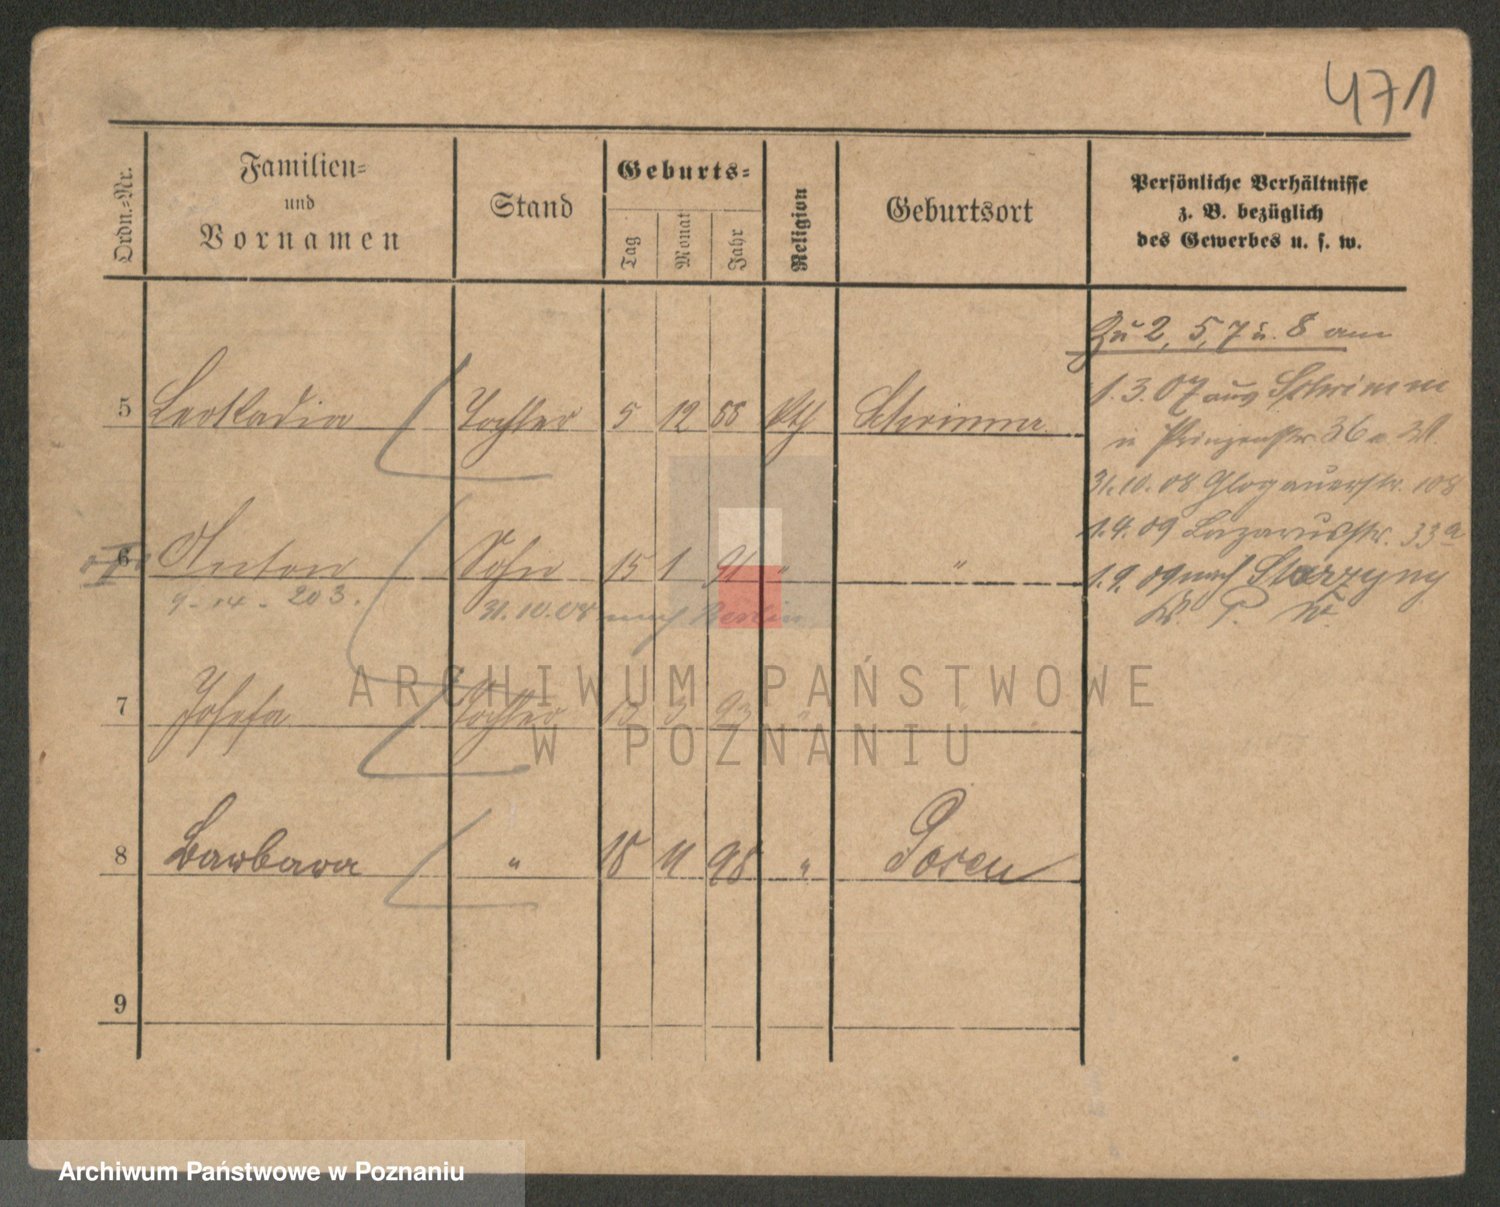 471
Ordn.-Nr.
Familien-
und
Vornamen
Stand
Geburts-
Tag
Monat
Jahr
Religion
Geburtsort
Persönliche Verhältnisse
z. B. bezüglich
des Gewerbes u. s. w.
Zu 2, 5, 7 u. 8 am
1.3.07 aus Schrimm
in Prinzenstr. 36
31.10.08 Glogauerstr. 108
1.4.09 Lazarusstr. 33a
1.9.09 nach
5 Leokadia Tochter 5 12 88 kth Schrimm
6 Anton Sohn 15 1 91 " "
9-14-203.
31.10.08 nach Berlin
7 Josefa Tochter 93 " "
8 Barbara " 18 11 98 " Posen
9
ARCHIWUM PAŃSTWOWE
W POZNANIU
Archiwum Państwowe w Poznaniu